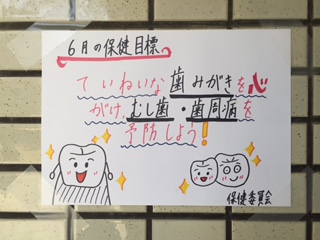 6月の保健目標
ていねいな歯みがきを心
がけ、むし歯・歯周病を
予防しよう!
保健委員会